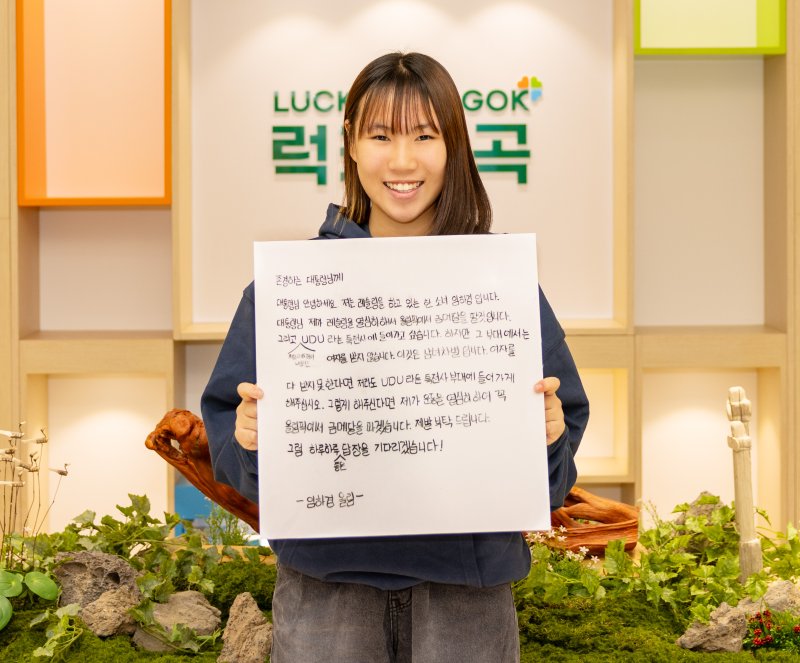 LUCK GOK
럭 곡
존경하는 대통령님께
대통령님 안녕하세요. 저는 레슬링을 하고 있는 한 소녀 엄하경 입니다.
대통령님 제가 레슬링을 열심히 하여서 올림픽에서 금메달을 딸것입니다.
그리고 UDU 라는 특전사에 들어가고 싶습니다. 하지만 그 부대에서는
여자를 받지 않습니다. 이것은 남녀차별 입니다. 여자를
다 받지 못한다면 저라도 UDU 라는 특전사 부대에 들어가게
해주십시오. 그렇게 해주신다면 제가 운동을 열심히 하여 꼭
올림픽에서 금메달을 따겠습니다. 제발 부탁 드립니다.
그럼 하루하루 답장을 기다리겠습니다!
-엄하경 올림-